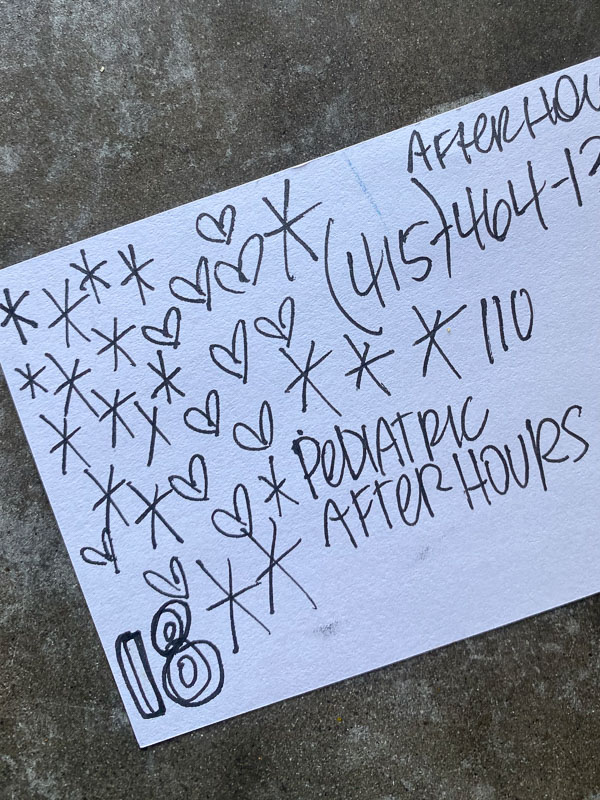 AFTERHOU
(415)-464-12
* * * 110
* PEDIATRIC
AFTER HOURS
18